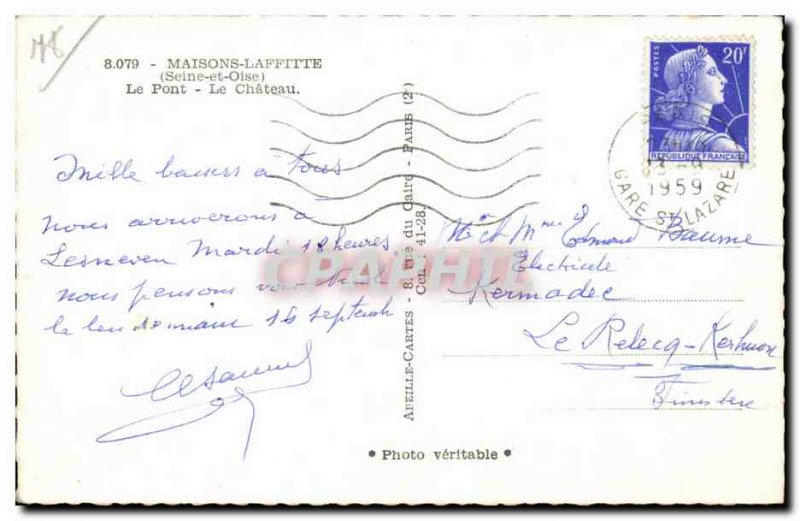 8.079 - MAISONS-LAFFITTE
(Seine-et-Oise)
Le Pont - Le Château.
Mille baisers à tous
nous arriverons à
Lesneven Mardi 18 heures
nous pensons vous
le lendemain 16 septemb
ABEILLE-CARTES - 8, rue du Caire - PARIS (2e)
Cen : 41-28.
* Photo véritable *
POSTES
20F
REPUBLIQUE FRANÇAISE
1959
GARE ST LAZARE
Mr et Mme Edmond Baume
Electricité
Kermadec
Le Relecq-Kerhuon
Finistère